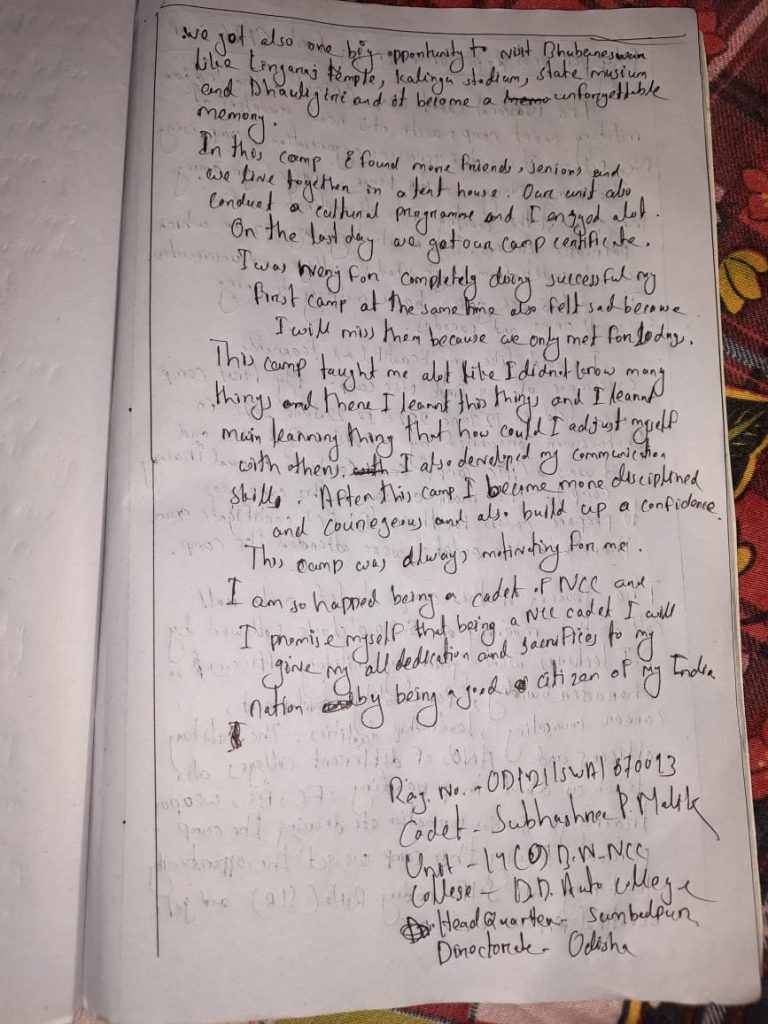 we got also one big opportunity to visit Bhubaneswar
like Lingaraj temple, Kalinga stadium, state musium
and Dhauligiri and it become a unforgettable
memory.
In this camp I found more friends, seniors and
we live together in a tent house. Our unit also
conduct a cultural programme and I enjyod alot.
On the last day we got our camp certificate.
I was for completely doing successful my
first camp at the same time also felt sad because
I will miss them because we only met for 10 days.
This camp taught me alot like I didnot know many
things and there I learnt this things and I learnt
main learning thing that how could I adjust myself
with others. I also developed my communication
skills. After this camp I become more disciplined
and couriegeous and also build up a confidence.
This camp was always motivating for me.
I am so happed being a cadet of NCC and
I promise myself that being a NCC cadet I will
give my all dedication and sacrifies to my
nation by being a good citizen of my India.
Reg. No. - OD/21/SWA/
Cadet - Subhashree P. Malik
Unit - (O) B.N. NCC
College - D.D. Auto College
Head Quarter - Sambalpur
Directorate - Odisha